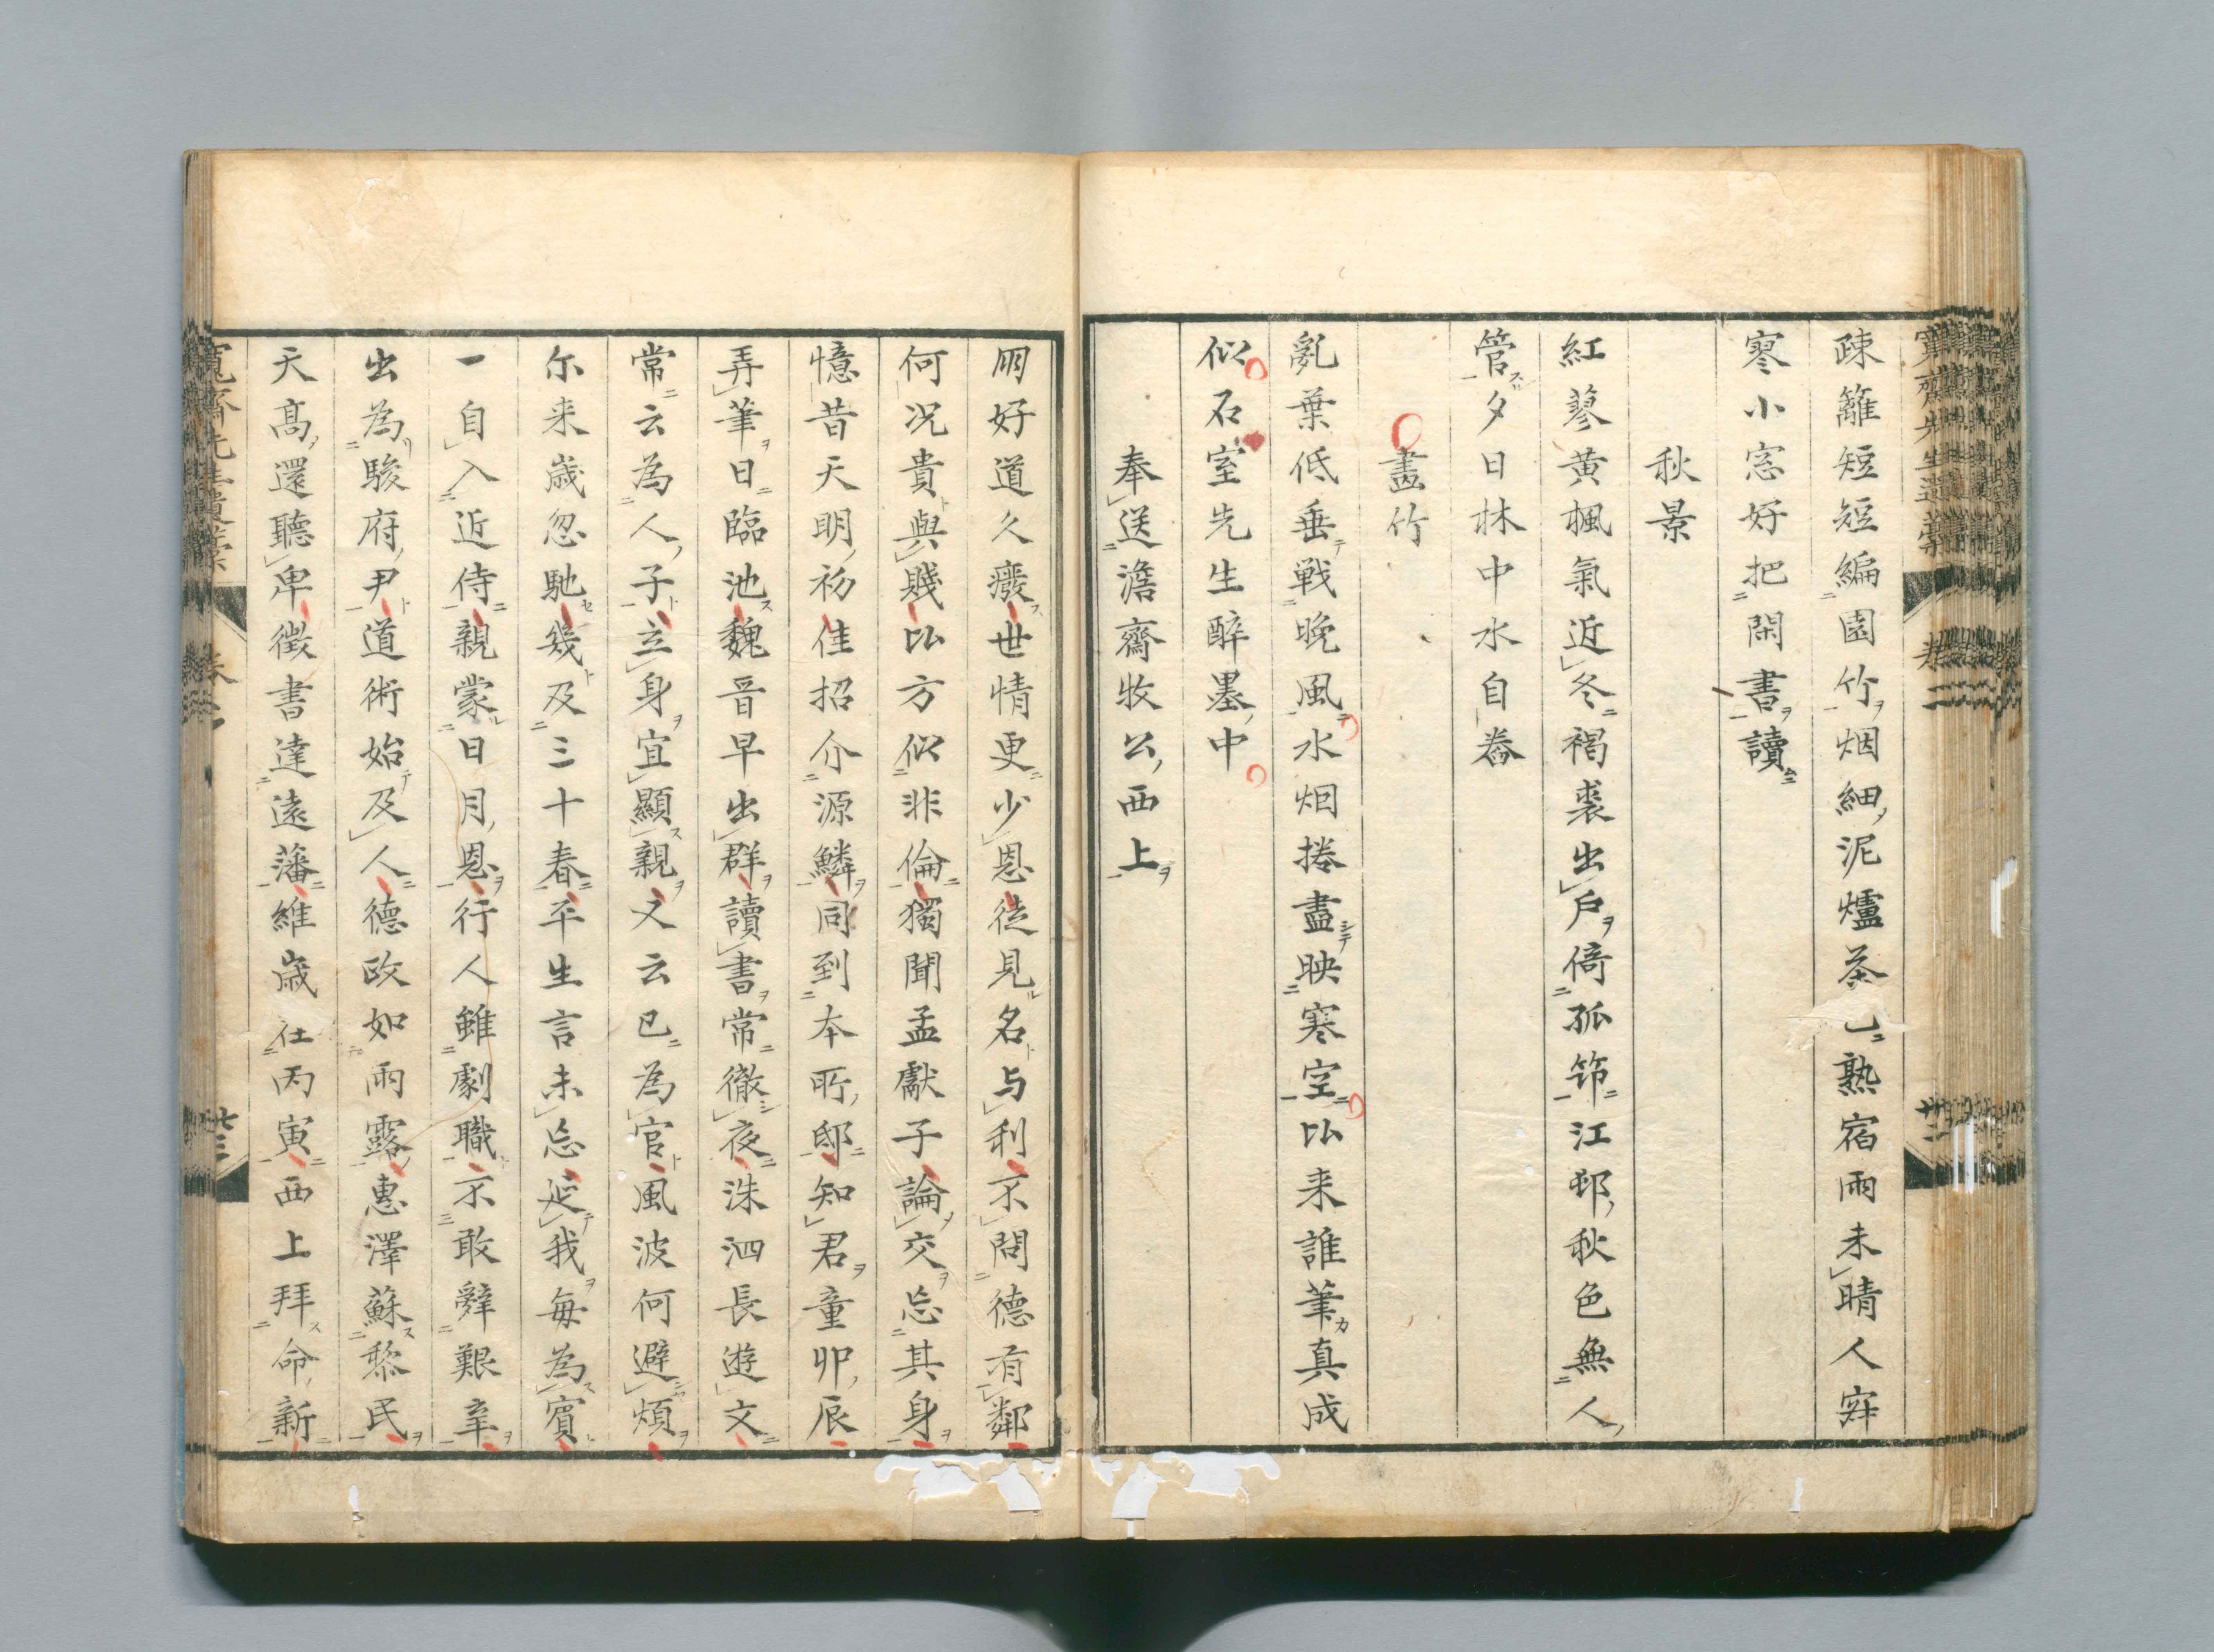 疎籬短短編園竹烟細泥爐茶已熟宿雨未晴人寂
寒小窓好把閑書讀
秋景
紅蓼黄楓氣近冬褐裘出戸倚孤筇江邨秋色無人
管夕日林中水自舂
畫竹
亂葉低垂戰晩風水烟捲盡映寒空以来誰筆真成
似石室先生醉墨中
奉送澹齋牧公西上
朋好道久癈世情更少恩徒見名与利不問德有鄰
何况貴與賤以方似非倫獨聞孟獻子論交忘其身
憶昔天明初佳招介源鱗同到本所邸知君童丱辰
弄筆日臨池魏晋早出群讀書常徹夜洙泗長遊文
常云為人子立身宜顯親又云已為官風波何避煩
尓来歳忽馳幾及三十春平生言未忘延我毎為賓
一自入近侍親蒙日月恩行人雖劇職不敢辭艱辛
出為駿府尹道術始及人德政如雨露惠澤蘇黎民
天髙還聽卑徴書達遠藩維歳在丙寅西上拜命新
寬齋先生遺稾
卷二